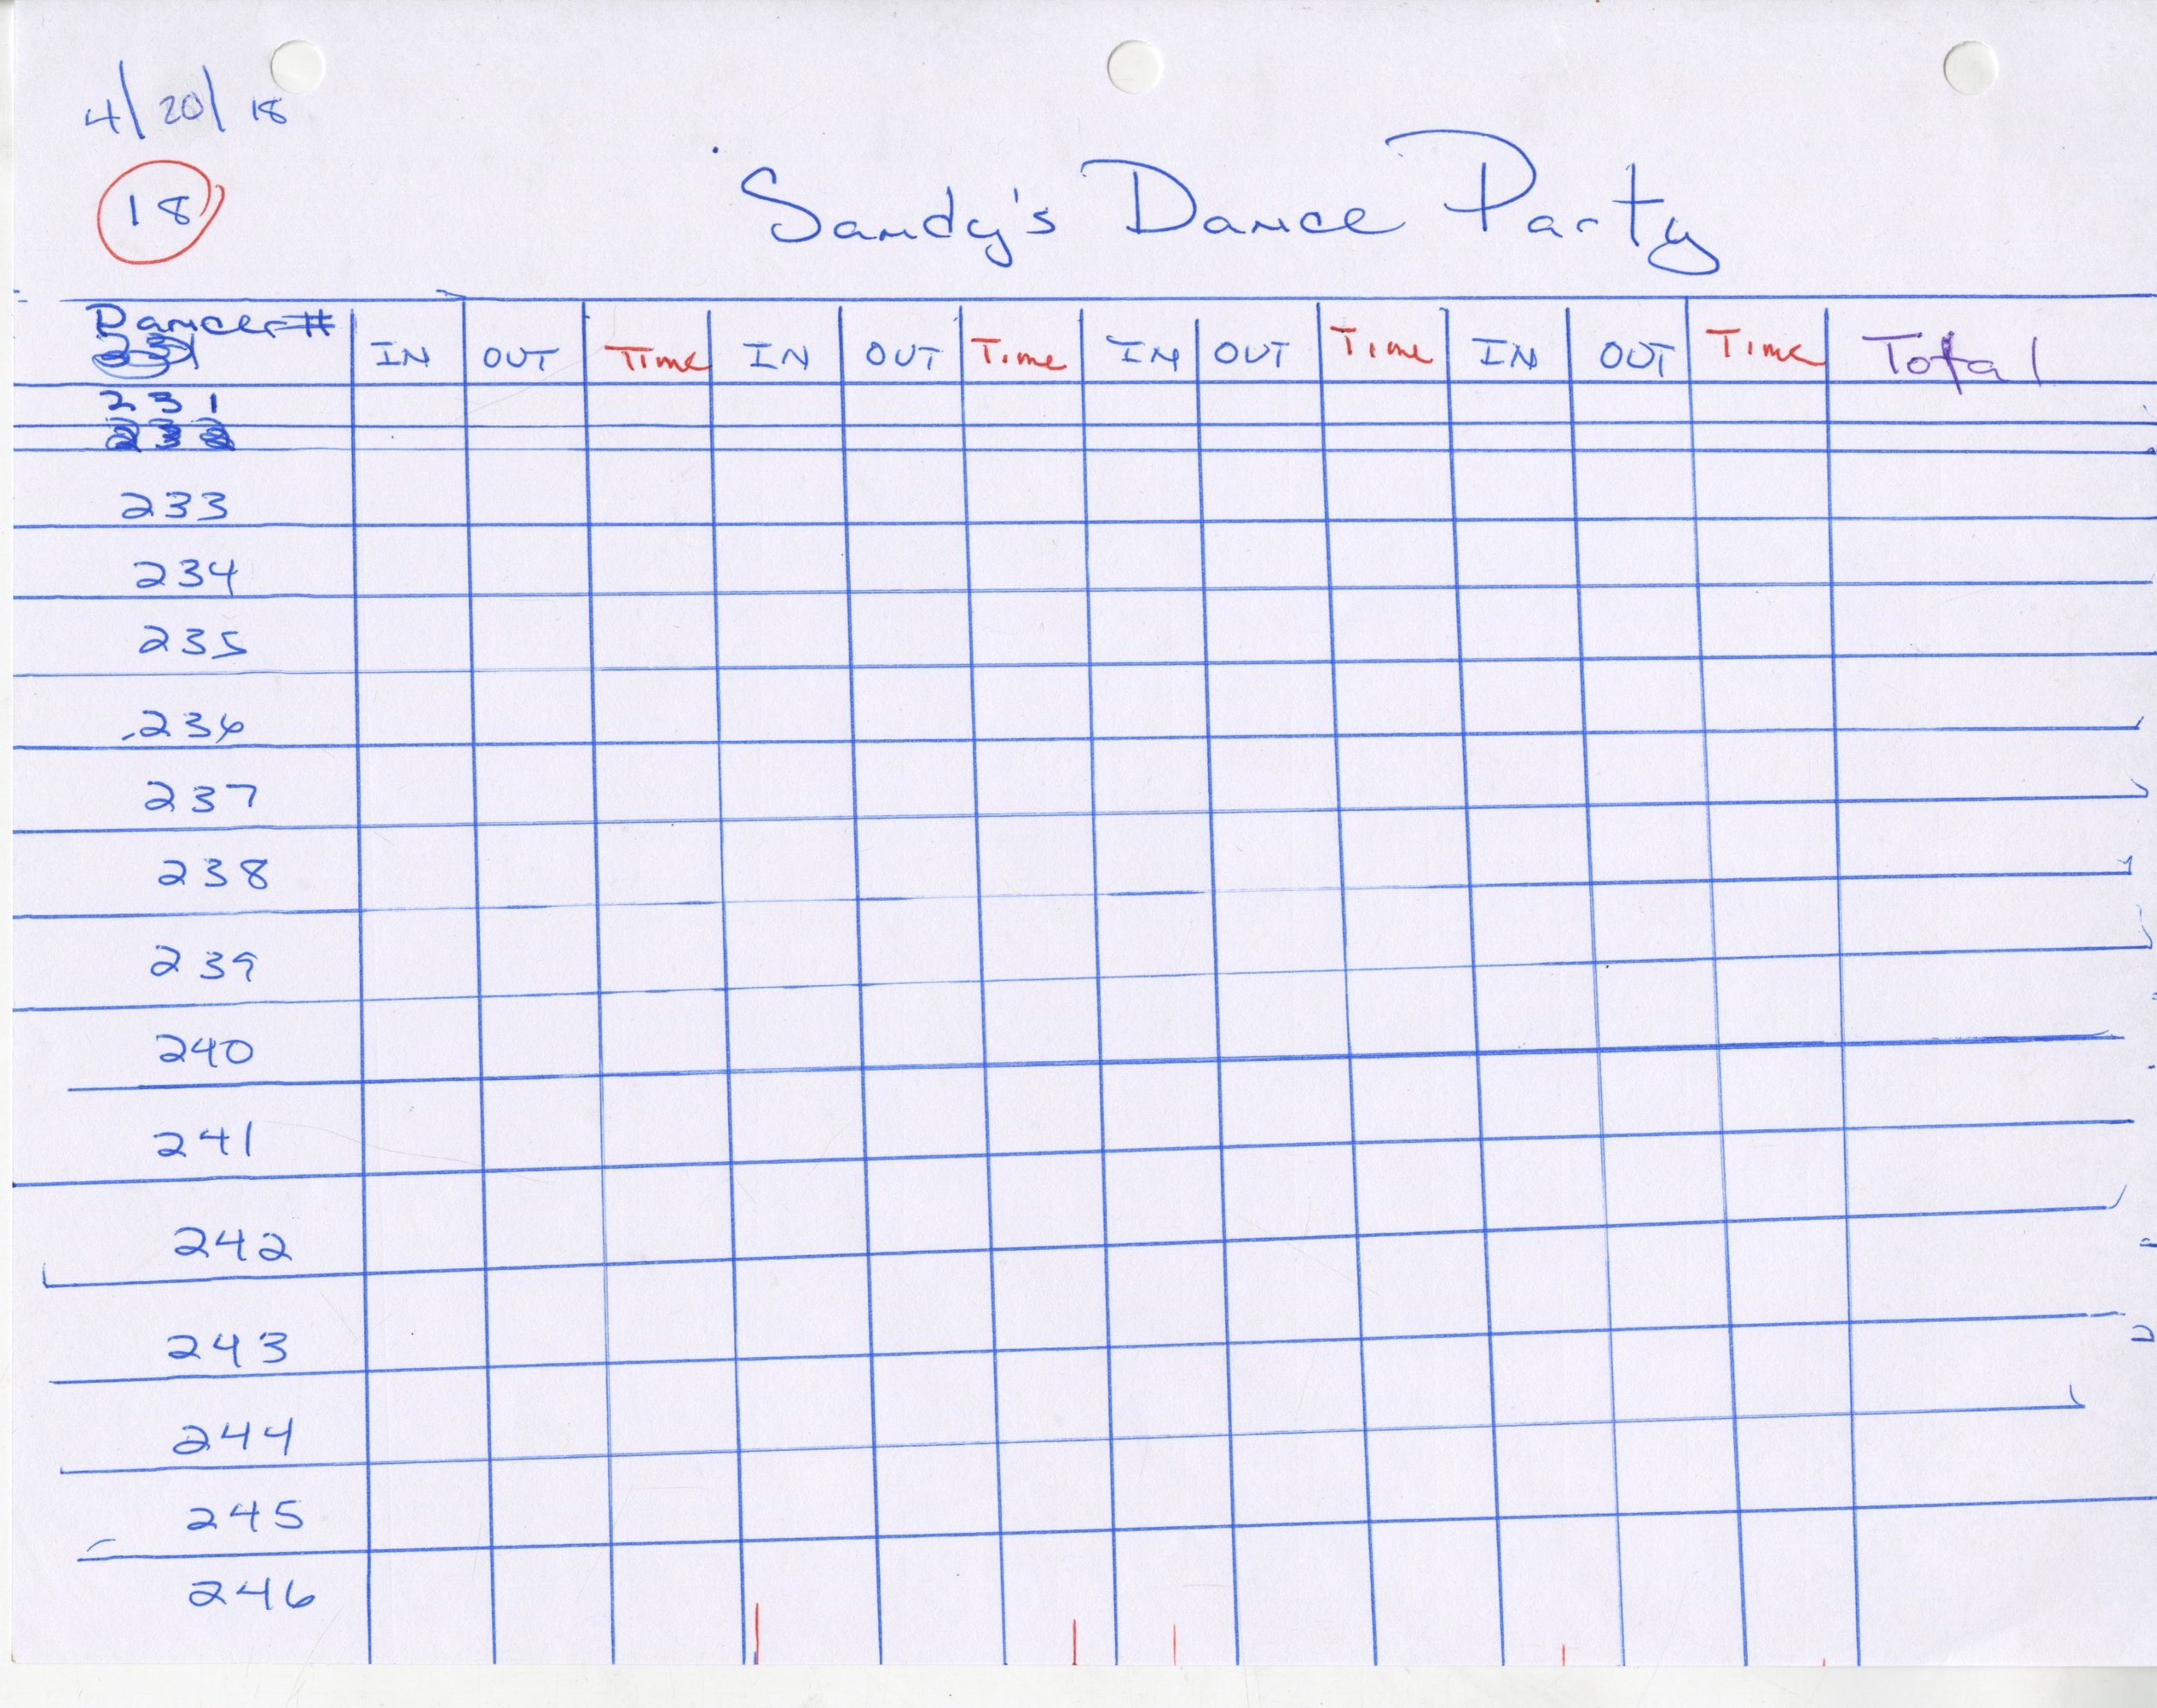 4/20/18
18
Sandy's Dance Party
Dancer #
IN OUT Time IN OUT Time IN OUT Time IN OUT Time Total
231
232
233
234
235
236
237
238
239
240
241
242
243
244
245
246